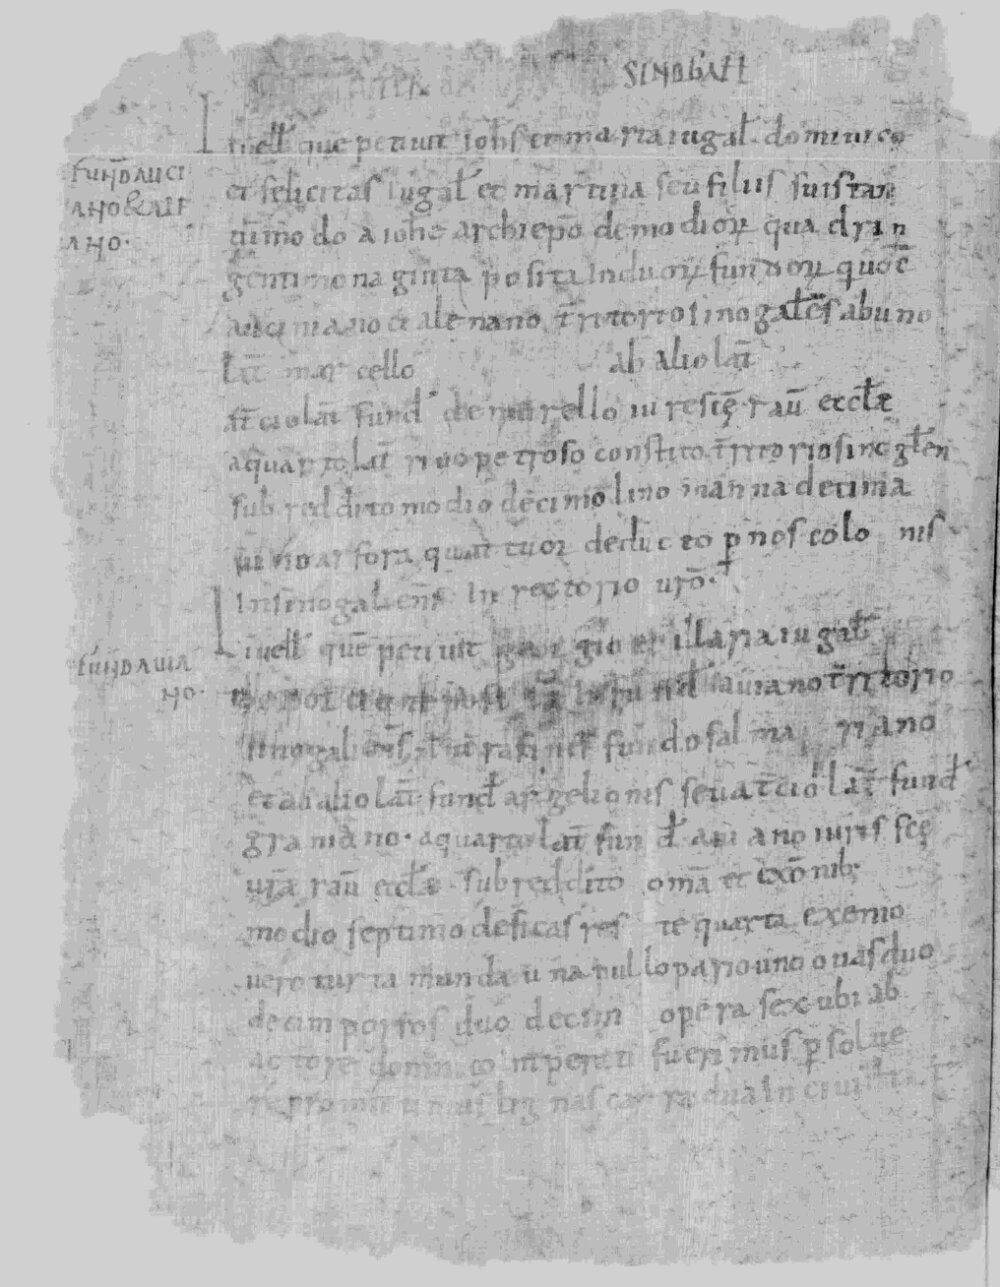 SINOGALL
Libell que petivit Iohs et maria iugal. dominico
FUNḊ AUCI
ANO & ALE
NANO.
et felicitas iugal et martina seu filiis suis tan
tūmodo a iohe archiepō de modiorꝝ quadrin
genti nonaginta posita In duorꝝ fundorꝝ quoꝝ
auciniano et alenano tr̄ritorio sinogalīēs ab uno
lat̄ marcello ab alio lat̄
tr̄cio lat̄ fund̄ de murello iuris scē rav̄ eccl̄æ
a quarto lat̄ rivo petroso constito tr̄ritorio sinogl̄en
sub reddito modio decimo lino manna decima
vino arfora quattuor deducto p̄ nos colonis
In sinogaliens̄ In rectorio vr̄o.
FUNḊ AVIA
NO.
Libell quē petivit georgio et illaria iugal̄
fund̄ aviano tr̄ritorio
sinogaliens̄ fundo salmariano
et ab alio lat̄ fund̄ argelionis seu a tr̄cio lat̄ fund̄
graniano. a quarto lat̄ fund̄ aviano iuris scē
vr̄a rav̄ eccl̄æ. sub reddito omā et exōnib;
modio septimo de ficas res te quarta exenio
vero turta munda una pullo pario uno ovas duo
decim porros duo decim opera sex ubi ab
actore domnico Imperati fuerimus p̄solve
re promittimus lignas carra dua In civit